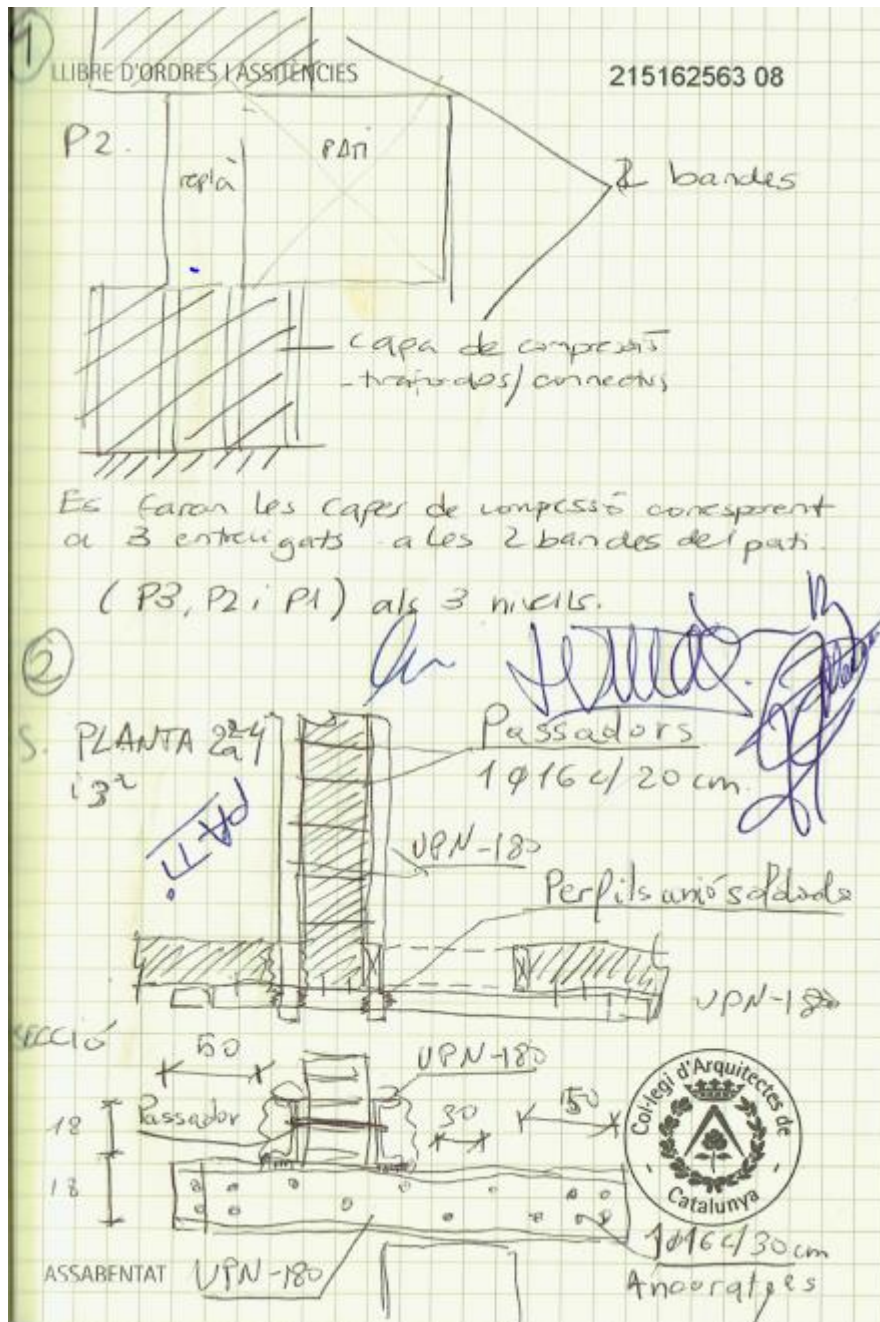 1
LLIBRE D'ORDRES I ASSITÈNCIES
215162563 08
P2.
replà
PATI
2 bandes
capa de compressió
Es faran les capes de compessió
a 3 entrevigats a les 2 bandes del pati.
(P3, P2 i P1) als 3 nivells.
2
S. PLANTA 2a
i 3a
PATI
Passadors
1 ϕ16 c/ 20 cm.
UPN-180
Perfils unió soldada
UPN-180
SECCIÓ
50
UPN-180
18
Passador
30
50
18
Col·legi d'Arquitectes de Catalunya
1ϕ16 c/ 30 cm
ASSABENTAT
UPN-180
Ancoratges